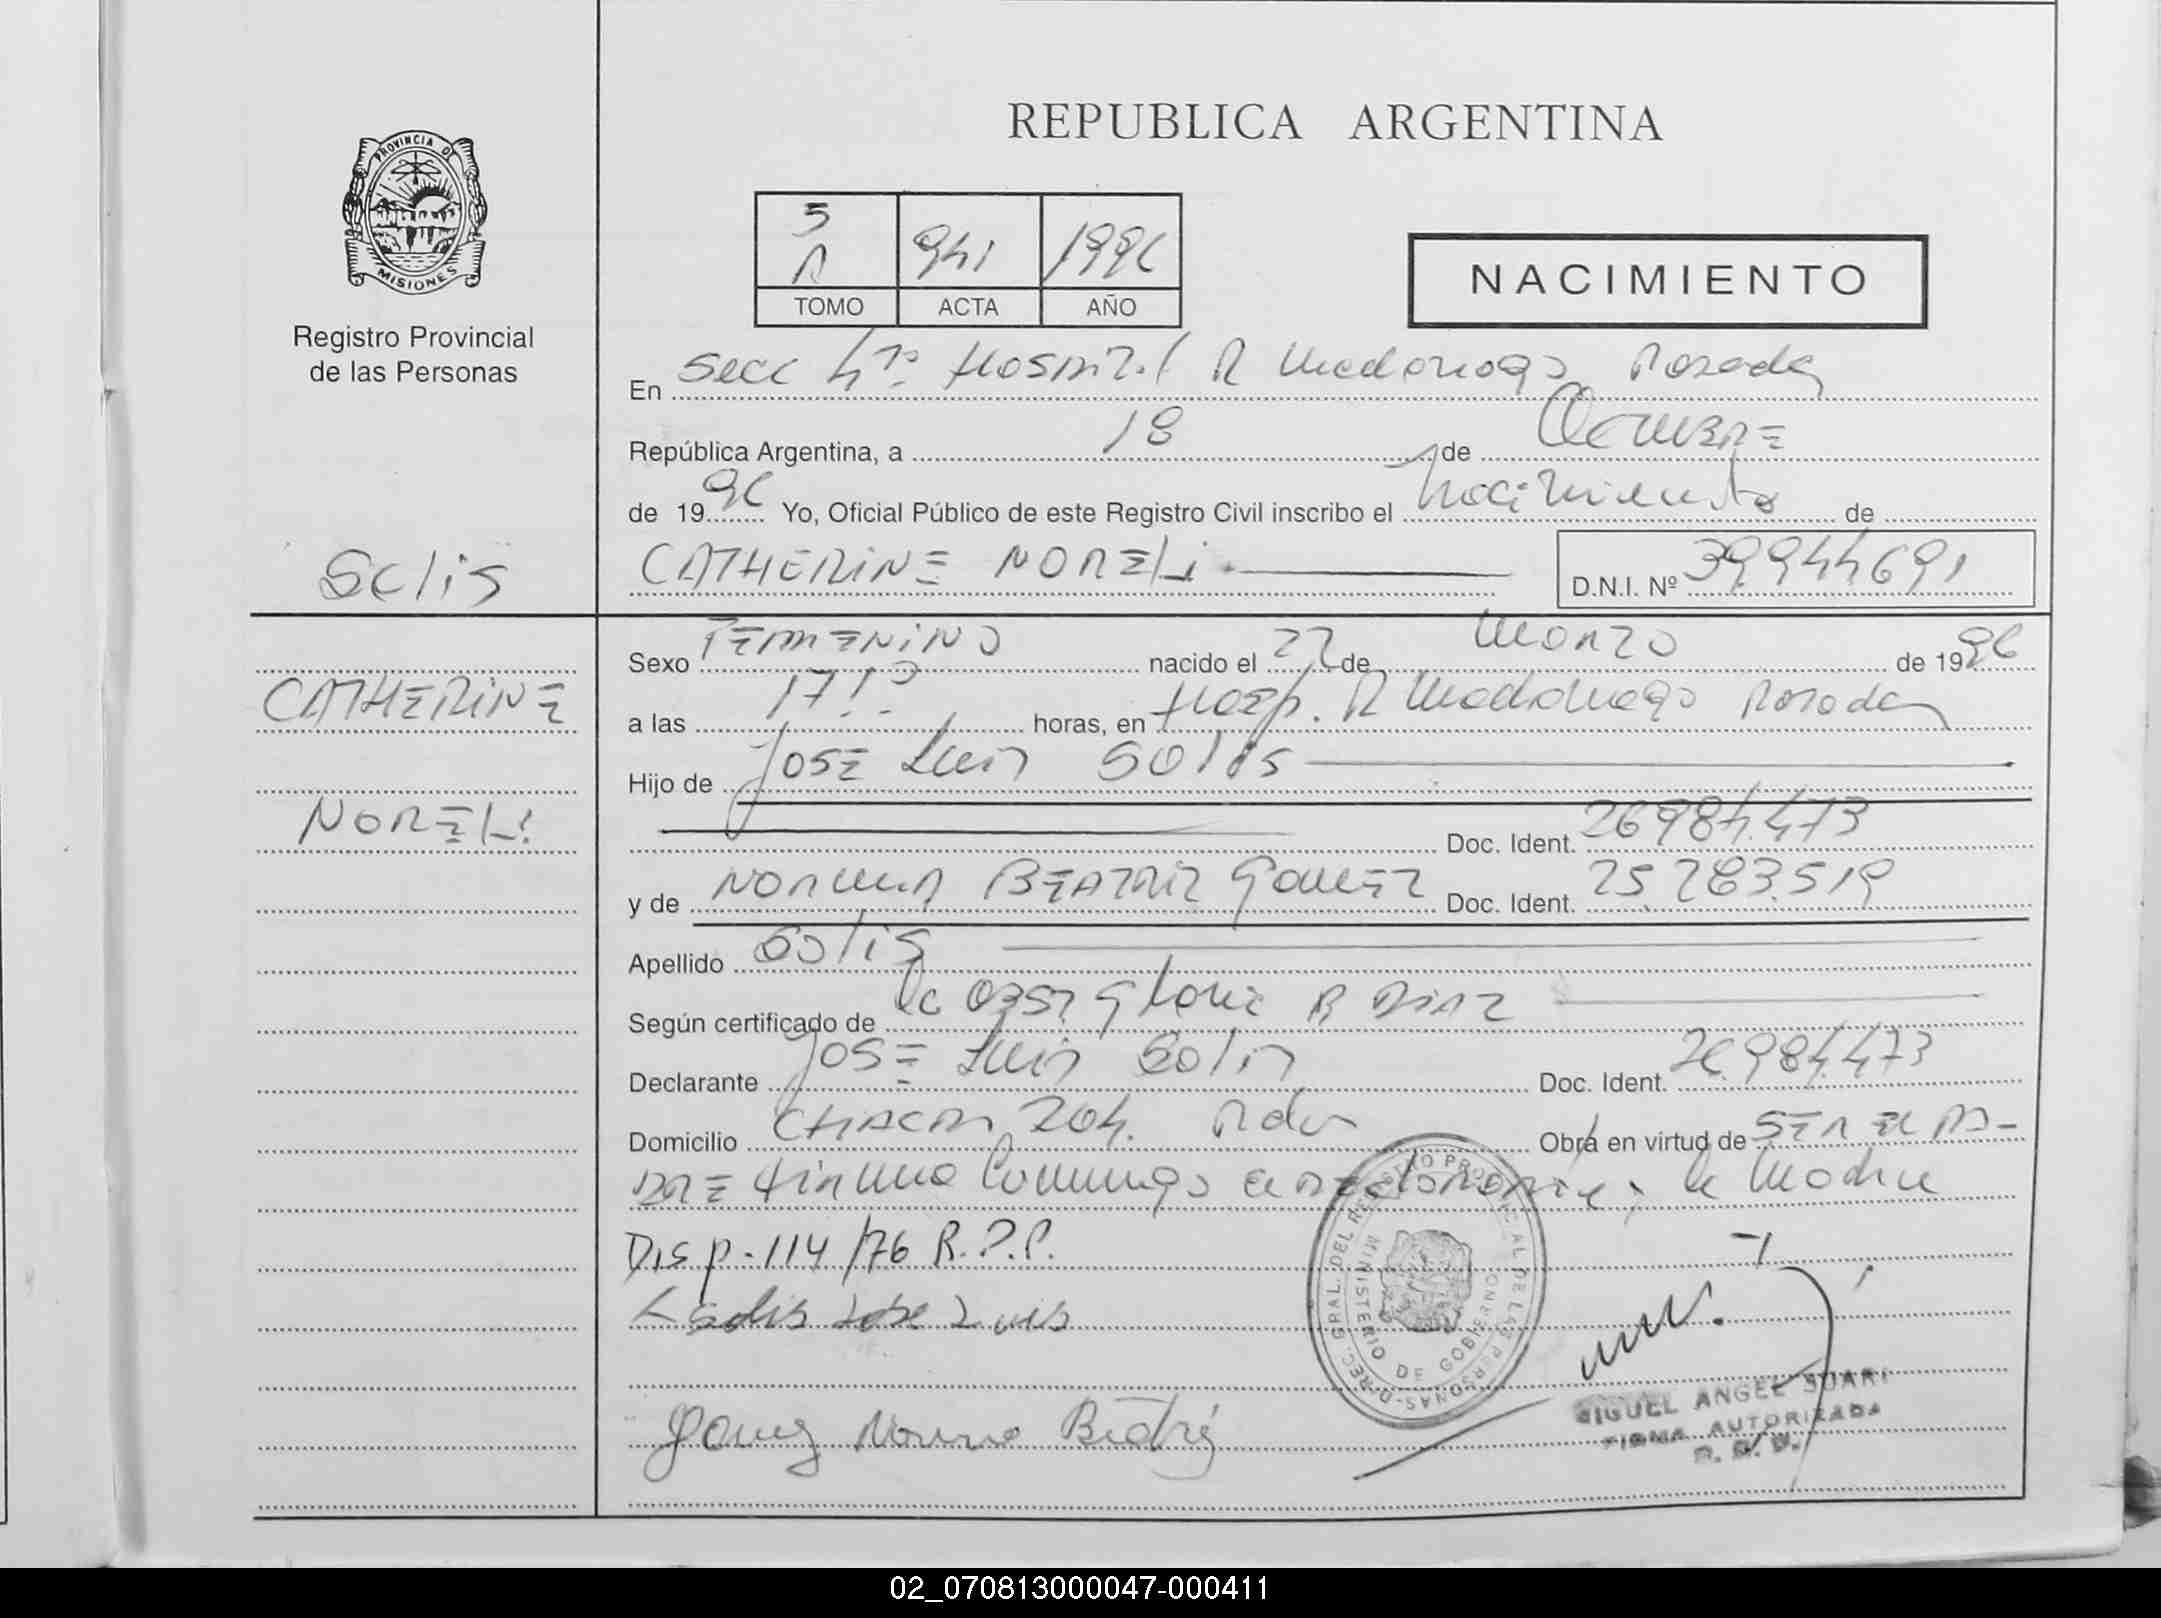 REPUBLICA ARGENTINA
PROVINCIA DE
MISIONES
Registro Provincial
de las Personas
5
A 941 1996
TOMO ACTA AÑO
NACIMIENTO
En Secc 4ta Hospital R Madariaga Posadas
República Argentina, a 18 de Octubre
de 1996 Yo, Oficial Público de este Registro Civil inscribo el Nacimiento de
Solis
CATHERINE NORELI
D.N.I. Nº 39944691
Sexo FEMENINO nacido el 22 de Marzo de 1996
CATHERINE
a las horas, en Hosp. R Madariaga Posadas
Hijo de JOSE Luis Solis
NORELI
Doc. Ident. 26984.473
y de NORMA BEATRIZ GOMEZ Doc. Ident. 25.283.519
Apellido Solis
Según certificado de R DIAZ
Declarante JOSE Luis Solis Doc. Ident. 26984.473
Domicilio CHACO 204. Pdas Obra en virtud de SER EL PA-
DRE Firma Conmigo el declarante y la Madre
Disp. 114/76 R.P.P.
Solis Jose Luis
Gomez Norma Beatriz
DIREC. GRAL. DEL REGISTRO PROVINCIAL DE LAS PERSONAS
MINISTERIO DE GOBIERNO
MIGUEL ANGEL
FIRMA AUTORIZADA
02_070813000047-000411